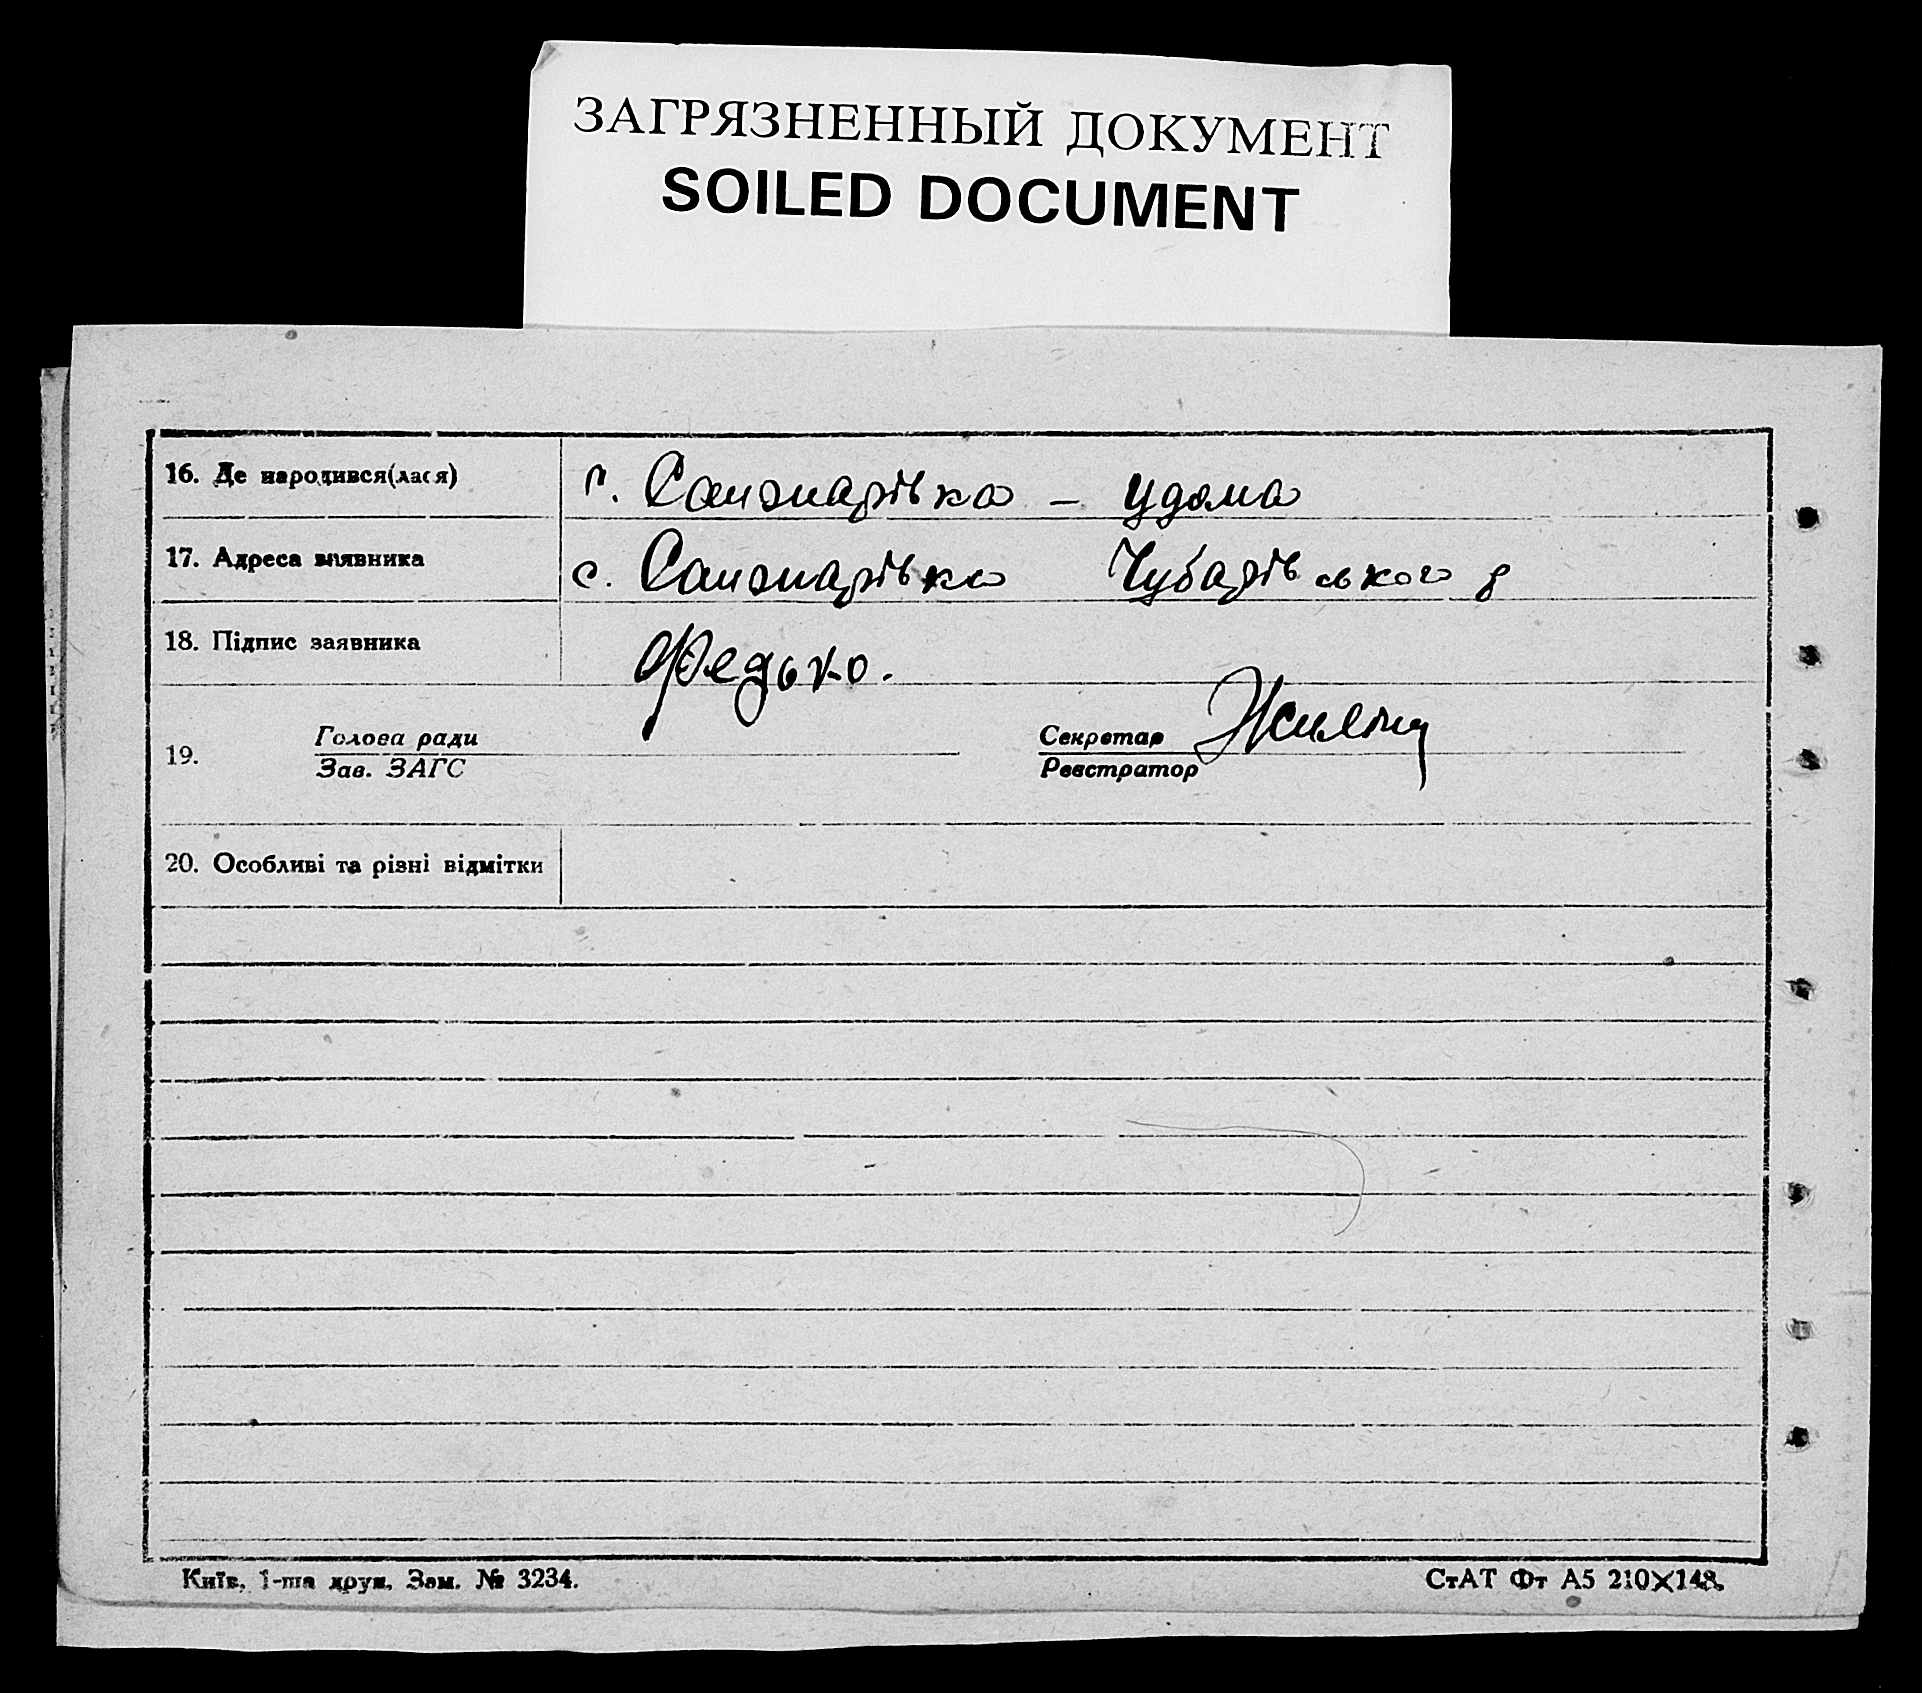 ЗАГРЯЗНЕННЫЙ ДОКУМЕНТ
SOILED DOCUMENT
16. Де народився(лася) с. Санжарівка – удома
17. Адреса заявника с. Санжарівка Чубарівського р
18. Підпис заявника Федько.
19. Голова ради Секретар
Зав. ЗАГС Реєстратор
20. Особливі та різні відмітки
Київ, 1-ша друк. Зам. № 3234. СтАТ Фт А5 210×148.